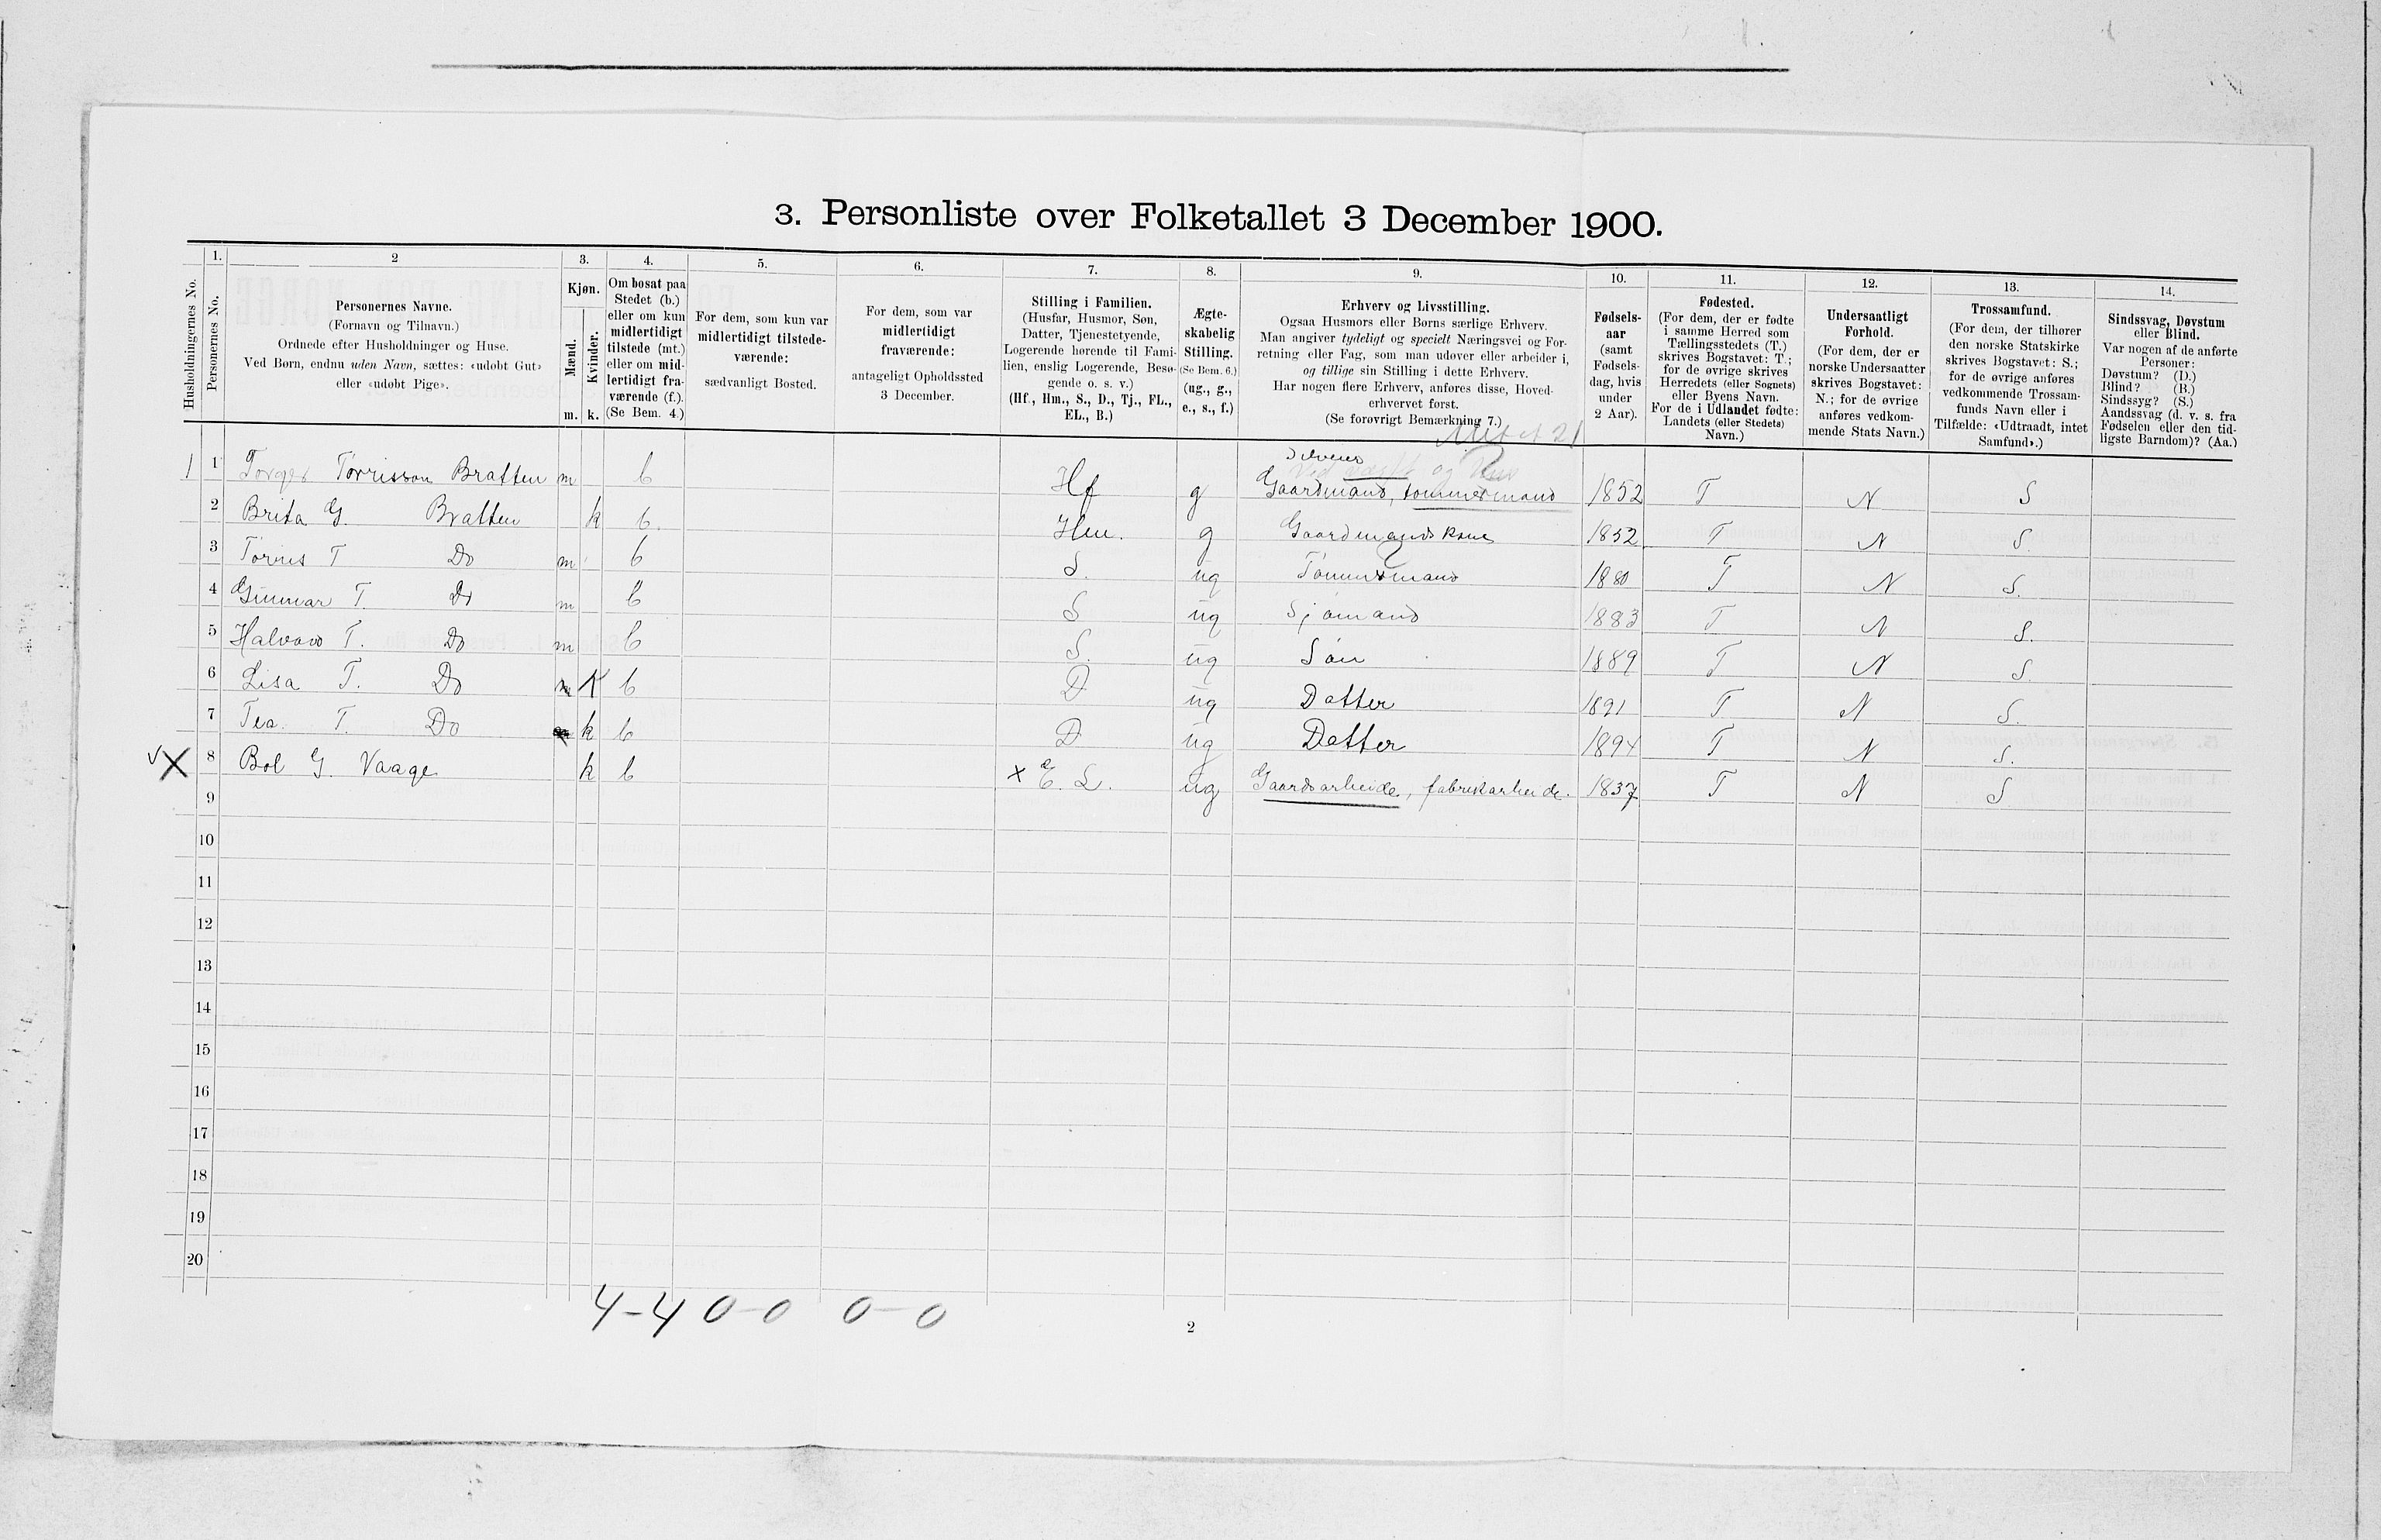 3. Personliste over Folketallet 3 December 1900.
Husholdningernes No.
1.
Personernes No.
2
Personernes Navne.
(Fornavn og Tilnavn.)
Ordnede efter Husholdninger og Huse.
Ved Børn, endnu uden Navn, sættes: «udøbt Gut»
eller «udøbt Pige».
3.
Kjøn.
Mænd.
Kvinder.
m. k.
4.
Om bosat paa
Stedet (b.)
eller om kun
midlertidigt
tilstede (mt.)
eller om mid-
lertidigt fra-
værende (f.).
(Se Bem. 4.)
5.
For dem, som kun var
midlertidigt tilstede-
værende:
sædvanligt Bosted.
6.
For dem, som var
midlertidigt
fraværende:
antageligt Opholdssted
3 December.
7.
Stilling i Familien.
(Husfar, Husmor, Søn,
Datter, Tjenestetyende,
Logerende hørende til Fami-
lien, enslig Logerende, Besø-
gende o. s. v.)
(Hf., Hm., S., D., Tj., FL.,
EL., B.)
8.
Ægte-
skabelig
Stilling.
(Se Bem. 6.)
(ug., g.,
e., s., f.)
9.
Erhverv og Livsstilling.
Ogsaa Husmors eller Børns særlige Erhverv.
Man angiver tydeligt og specielt Næringsvei og For-
retning eller Fag, som man udøver eller arbeider i,
og tillige sin Stilling i dette Erhverv.
Har nogen flere Erhverv, anføres disse, Hoved-
erhvervet først.
(Se forøvrigt Bemærkning 7.)
10.
Fødsels-
aar
(samt
Fødsels-
dag, hvis
under
2 Aar).
11.
Fødested.
(For dem, der er fødte
i samme Herred som
Tællingsstedets (T.)
skrives Bogstavet: T.;
for de øvrige skrives
Herredets (eller Sognets)
eller Byens Navn.
For de i Udlandet fødte:
Landets (eller Stedets)
Navn.)
12.
Undersaatligt
Forhold.
(For dem, der er
norske Undersaatter
skrives Bogstavet:
N.; for de øvrige
anføres vedkom-
mende Stats Navn.)
13.
Trossamfund.
(For dem, der tilhører
den norske Statskirke
skrives Bogstavet: S.;
for de øvrige anføres
vedkommende Trossam-
funds Navn eller i
Tilfælde: «Udtraadt, intet
Samfund».)
14.
Sindssvag, Døvstum
eller Blind.
Var nogen af de anførte
Personer:
Døvstum? (D.)
Blind? (B.)
Sindssyg? (S.)
Aandssvag (d. v. s. fra
Fødselen eller den tid-
ligste Barndom)? (Aa.)
Selveier
1 1 Torger Torrisson Bratten m b Hf g Gaardmand, tømmermand 1852 T N S
2 Brita G. Bratten k b. Hm. g Gaardmandskone 1852 T N S.
3 Torris T Do m b S. ug Tømmermand 1880 T N S.
4 Gunnar T. Do m b S ug Sjømand 1883 T N S.
5 Halvor T. Do m b S. ug Søn 1889 T N S.
6 Lisa T. Do K b D ug Datter 1891 T N S.
7 Tea. T. Do k b D ug Datter 1894 T N S.
X 8 Bol G. Vaage k b x E. L. ug Gaardsarbeide, fabrikarbeide. 1837 T N S
9
10
11
12
13
14
15
16
17
18
19
20
4-4 0-0 0-0
2